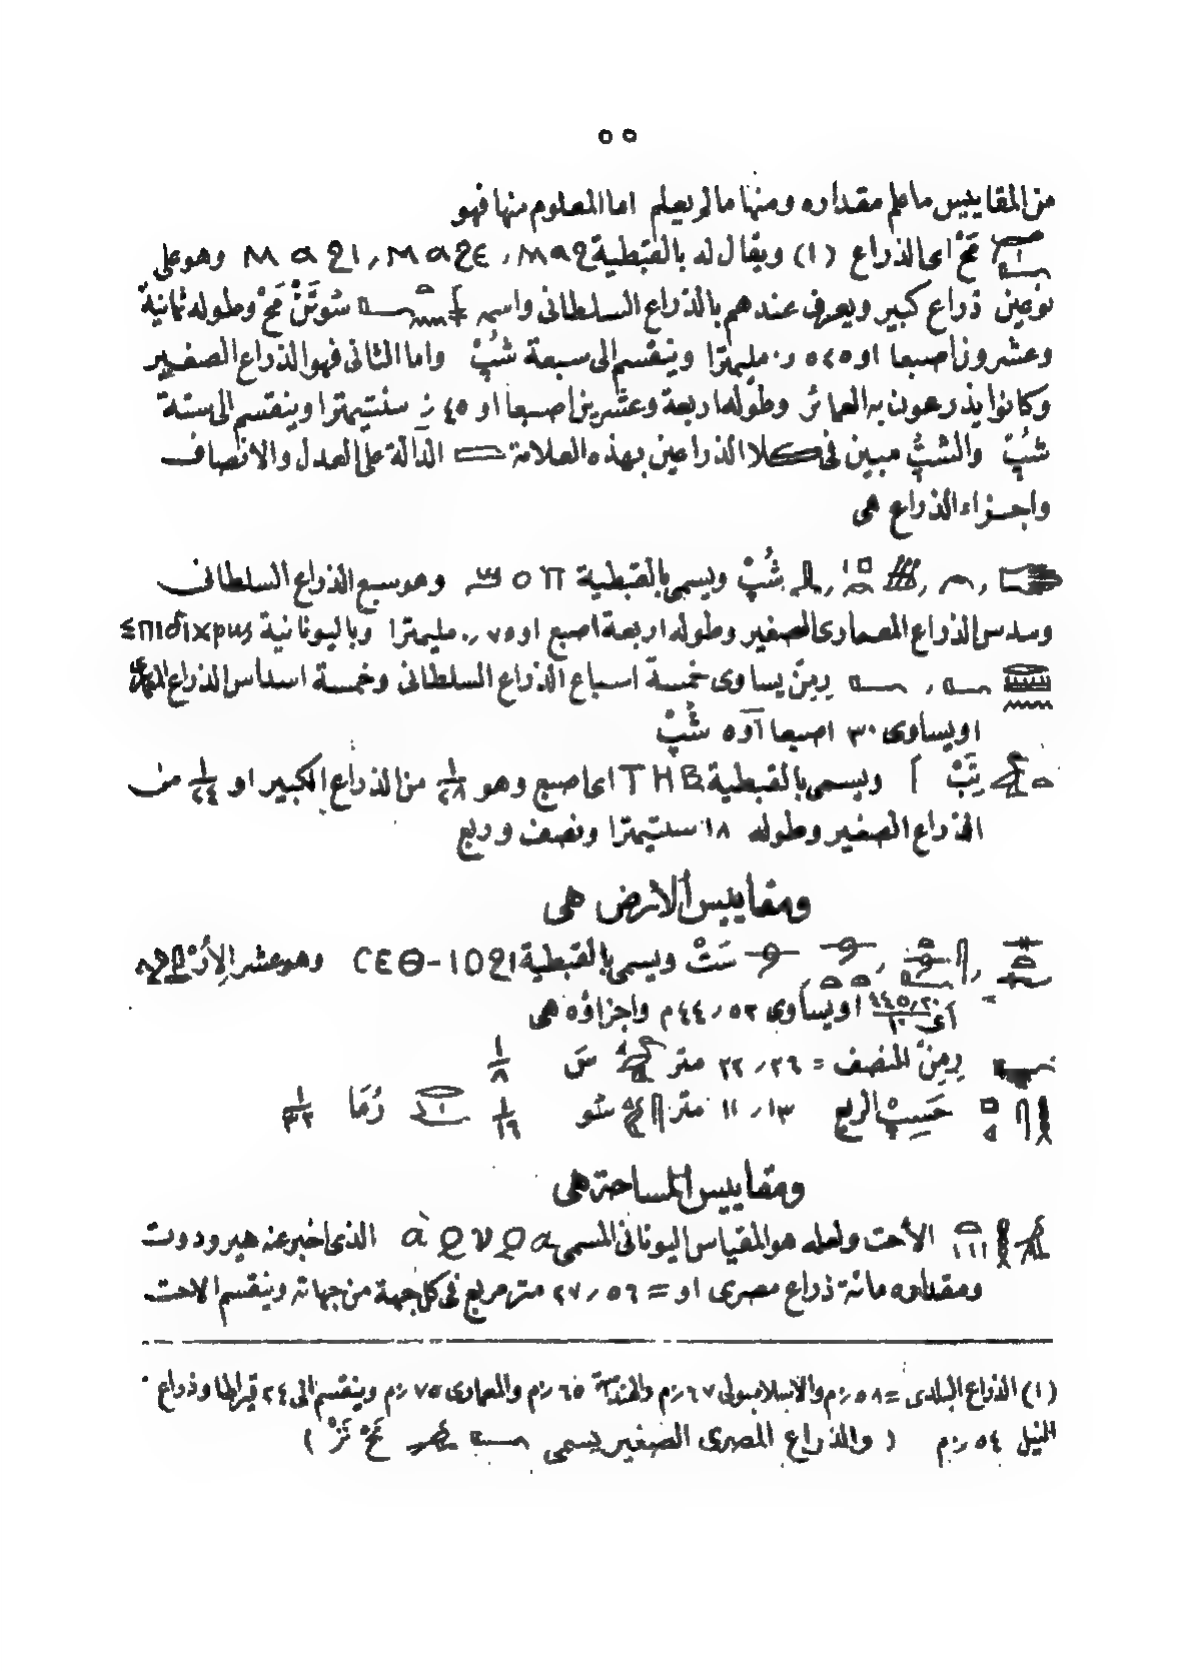 ٥٥
من المقاييس ما علم مقداره ومنها ما لم يعلم اما المعلوم منها فهو
مَحْ اى الذراع (١) ويقال له بالقبطية ⲙⲁϩⲓ , ⲙⲁϩⲉ , ⲙⲁϩ وهو على
نوعين ذراع كبير ويعرف عندهم بالذراع السلطانى واسمه سُوتَنْ مَحْ وطوله ثمانية
وعشرون اصبعا او ٥٢٥ ر٠ مليمترا وينقسم الى سبعة شُبْ واما الثانى فهو الذراع الصغير
وكانوا يذرعون به العمائر وطوله اربعة وعشرين اصبعا او ٤٥ ر٠ سنتيمترا وينقسم الى ستة
شُبْ والشبُ مبين فى كلا الذراعين بهذه العلامة الدالة على العدل والانصاف
واجزاء الذراع هى
شُبْ ويسمى بالقبطية ϣⲟⲡ وهو سبع الذراع السلطانى
وسدس الذراع المعمارى الصغير وطوله اربعة اصبع او ٧٥ ر٠ مليمترا وباليونانية
رِمِنْ يساوى خمسة اسباع الذراع السلطانى وخمسة اسداس الذراع
او يساوى ٣٠ اصبعا او ٥ شُبْ
تِبْ ويسمى بالقبطية ⲧⲏⲃ اى اصبع وهو ١/٢٨ من الذراع الكبير او ١/٢٤ من
الذراع الصغير وطوله ١٨ سنتيمترا ونصف وربع
ومقاييس الارض هى
سَتْ ويسمى بالقبطية ⲥⲉⲑ-ⲓⲟϩⲓ وهو عشر الأُرْ
او يساوى ٤٤٫٥٢ م واجزاؤه هى
رِمِنْ المنصف = ٢٢٫٢٦ متر سَ ١/٨
حَسِبْ الربع ١١٫١٣ متر سُو ١/١٦ رُمَا ١/٣٢
ومقاييس المساحة هى
الأحت ولعله هو المقياس اليونانى المسمى الذى اخبر عنه هيرودوت
ومقداره مائة ذراع مصرى او = ٢٧٫٥٦ متر مربع فى كل جهة من جهاته وينقسم الاحت
(١) الذراع البلدى = ٥٨ ر٠م والاسلامبولى ٦٧ ر٠م والهندا٣ة ٦٥ ر٠م والمعمارى ٧٥ ر٠م وينقسم الى ٢٤ قيراطا وذراع
النيل ٥٤ ر٠م (والذراع المصرى الصغير يسمى مَحْ نَزْ)